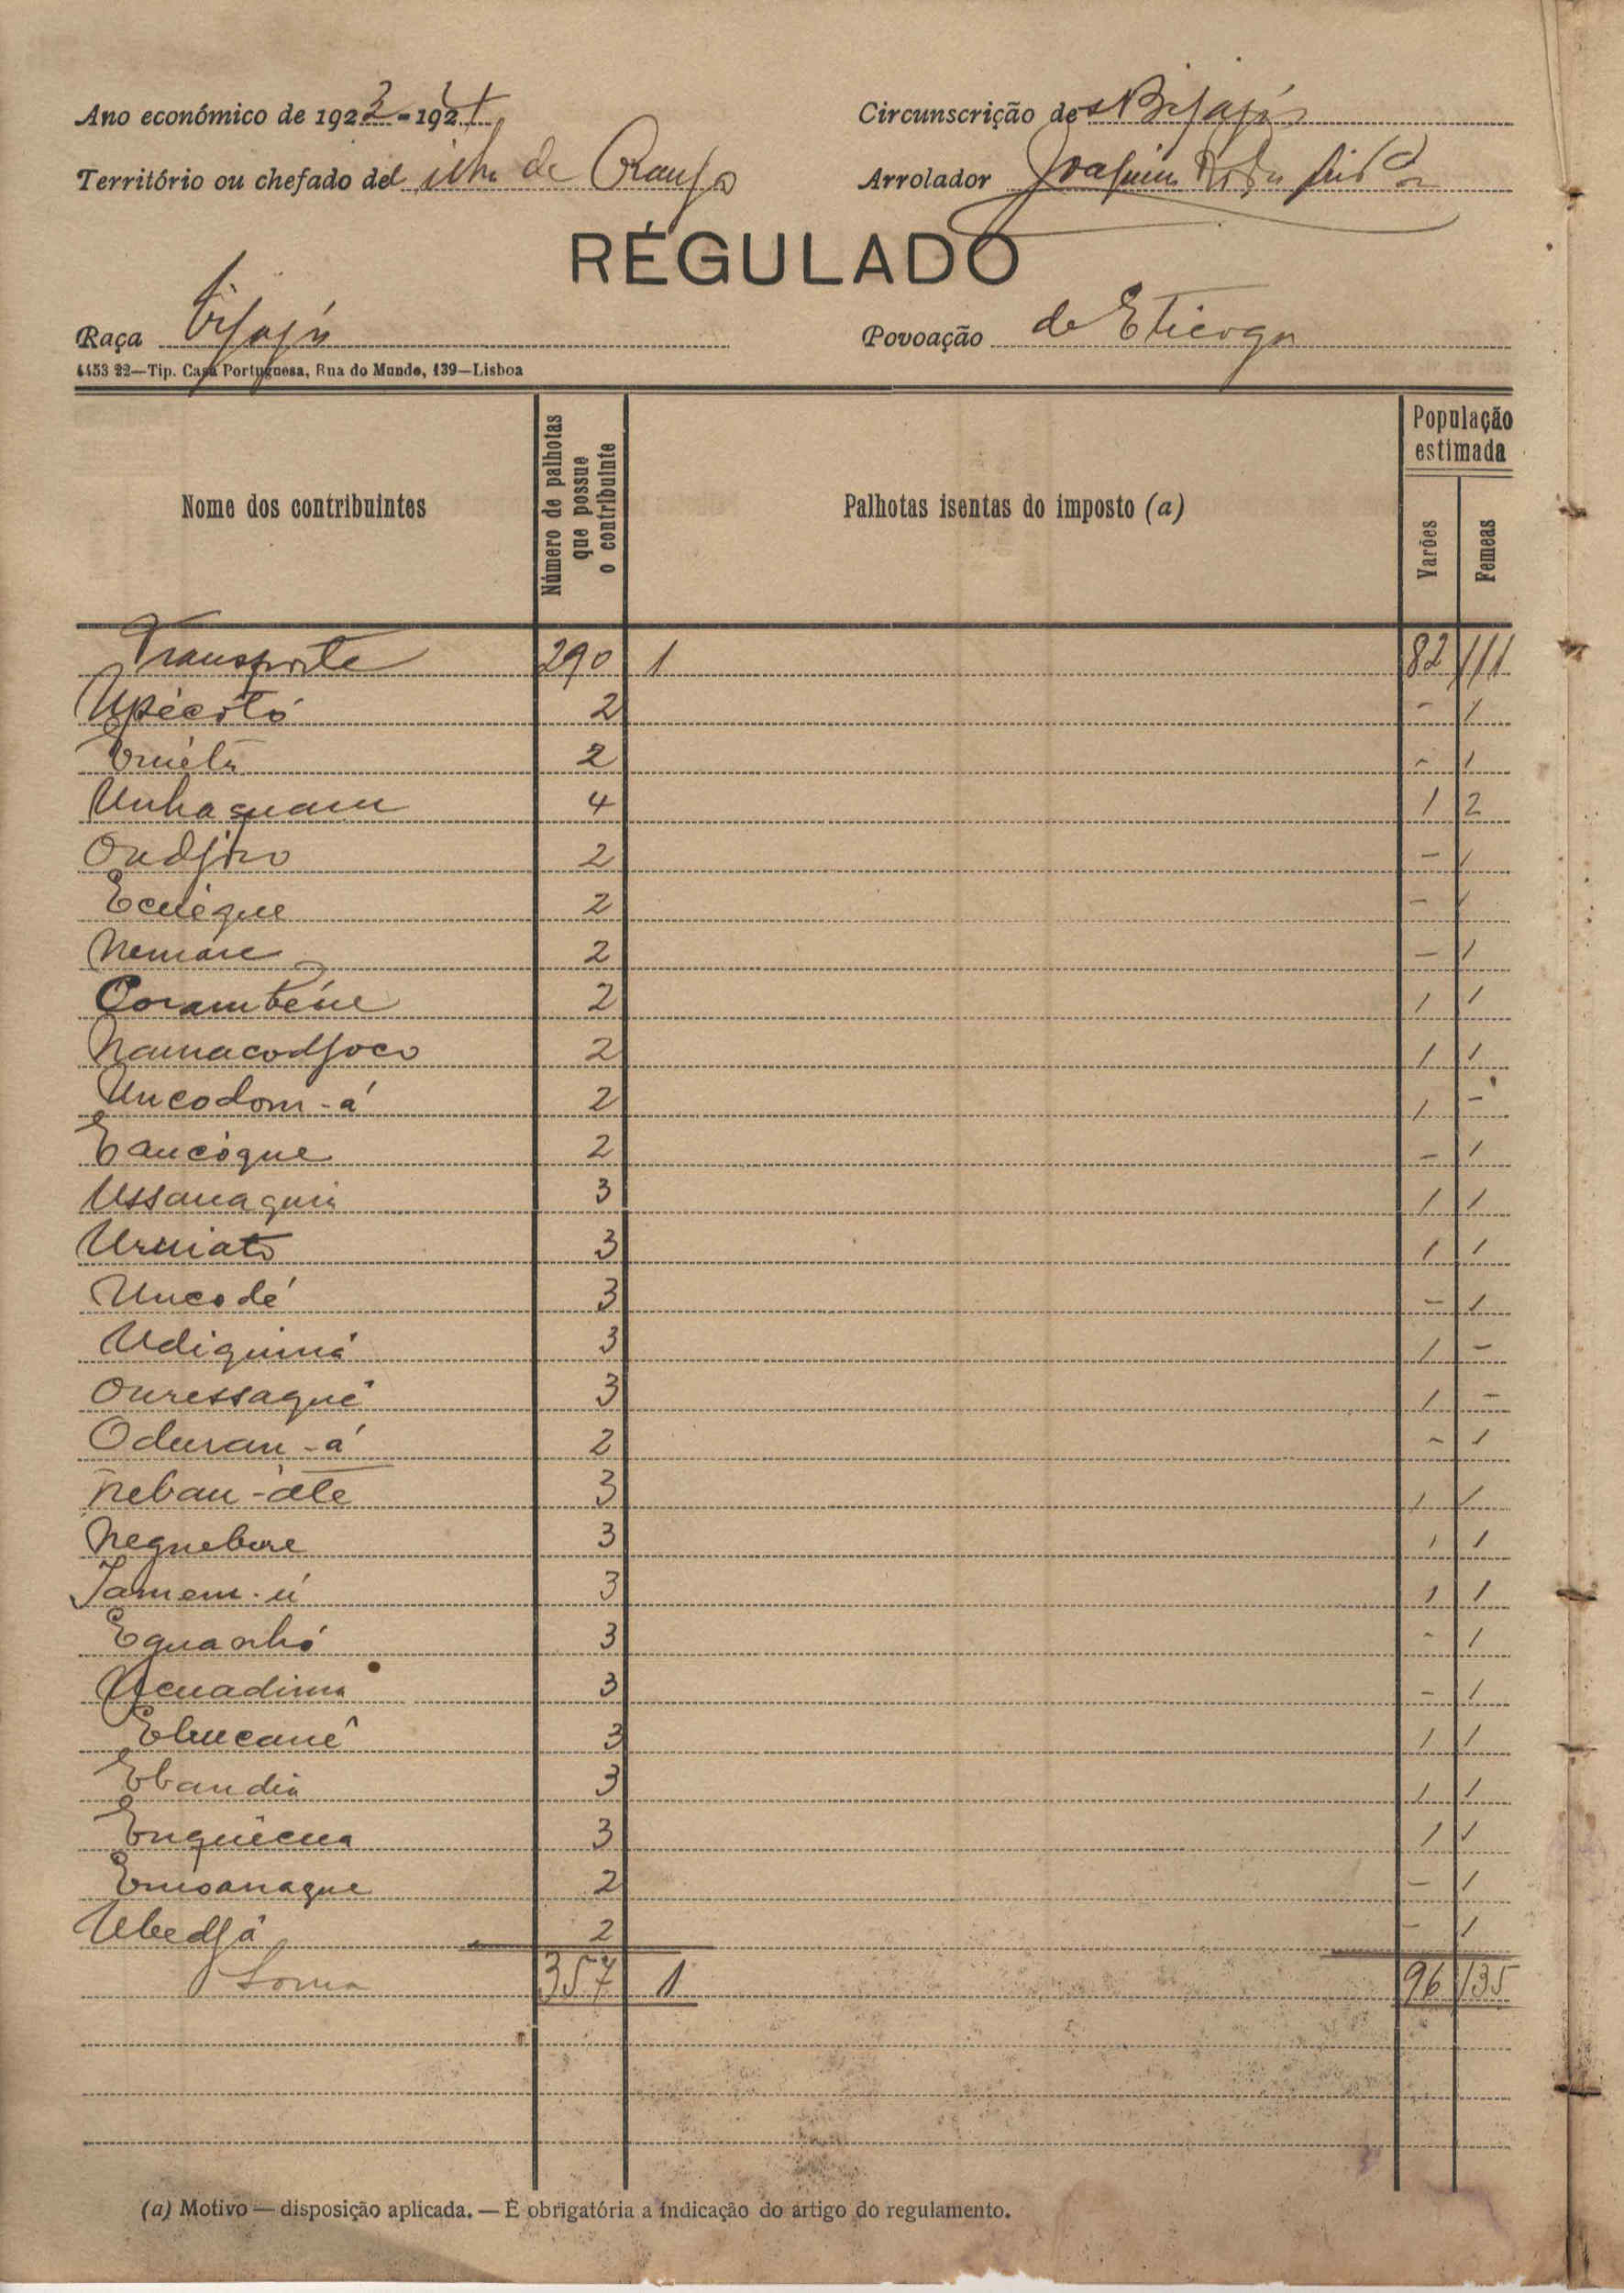 Ano económico de 1923-1924 Circunscrição de Bijajós
Território ou chefado de ilha de Orango Arrolador Joaquim
RÉGULADO
Raça bijajós Povoação de Eticoga
4453 22—Tip. Casa Portuguesa, Rua do Mundo, 139—Lisboa
Nome dos contribuintes Número de palhotas que possue o contribuinte Palhotas isentas do imposto (a) População estimada Varões Femeas
Transporte 290 1 82 111
Upécótó 2 - 1
2 - 1
4 1 2
Oudjoco 2 - 1
Ecuéque 2 - 1
2 - 1
Corambéne 2 1 1
Namacodjoco 2 1 1
Uncodom-á 2 1 -
Eancóque 2 - 1
Ussanaqui 3 1 1
Urniato 3 1 1
Uncodé 3 - 1
Udiquiná 3 1 -
Ouressaquê 3 1 -
Oduran-á 2 - 1
Neban-áte 3 1 1
Neguebure 3 1 1
Jamem-ú 3 1 1
Equanhó 3 - 1
3 - 1
Ebucanê 3 1 1
Ebandia 3 1 1
Enquécua 3 1 1
Emoanaque 2 - 1
Ubedjá 2 - 1
Soma 357 1 96 135
(a) Motivo — disposição aplicada. — É obrigatória a indicação do artigo do regulamento.